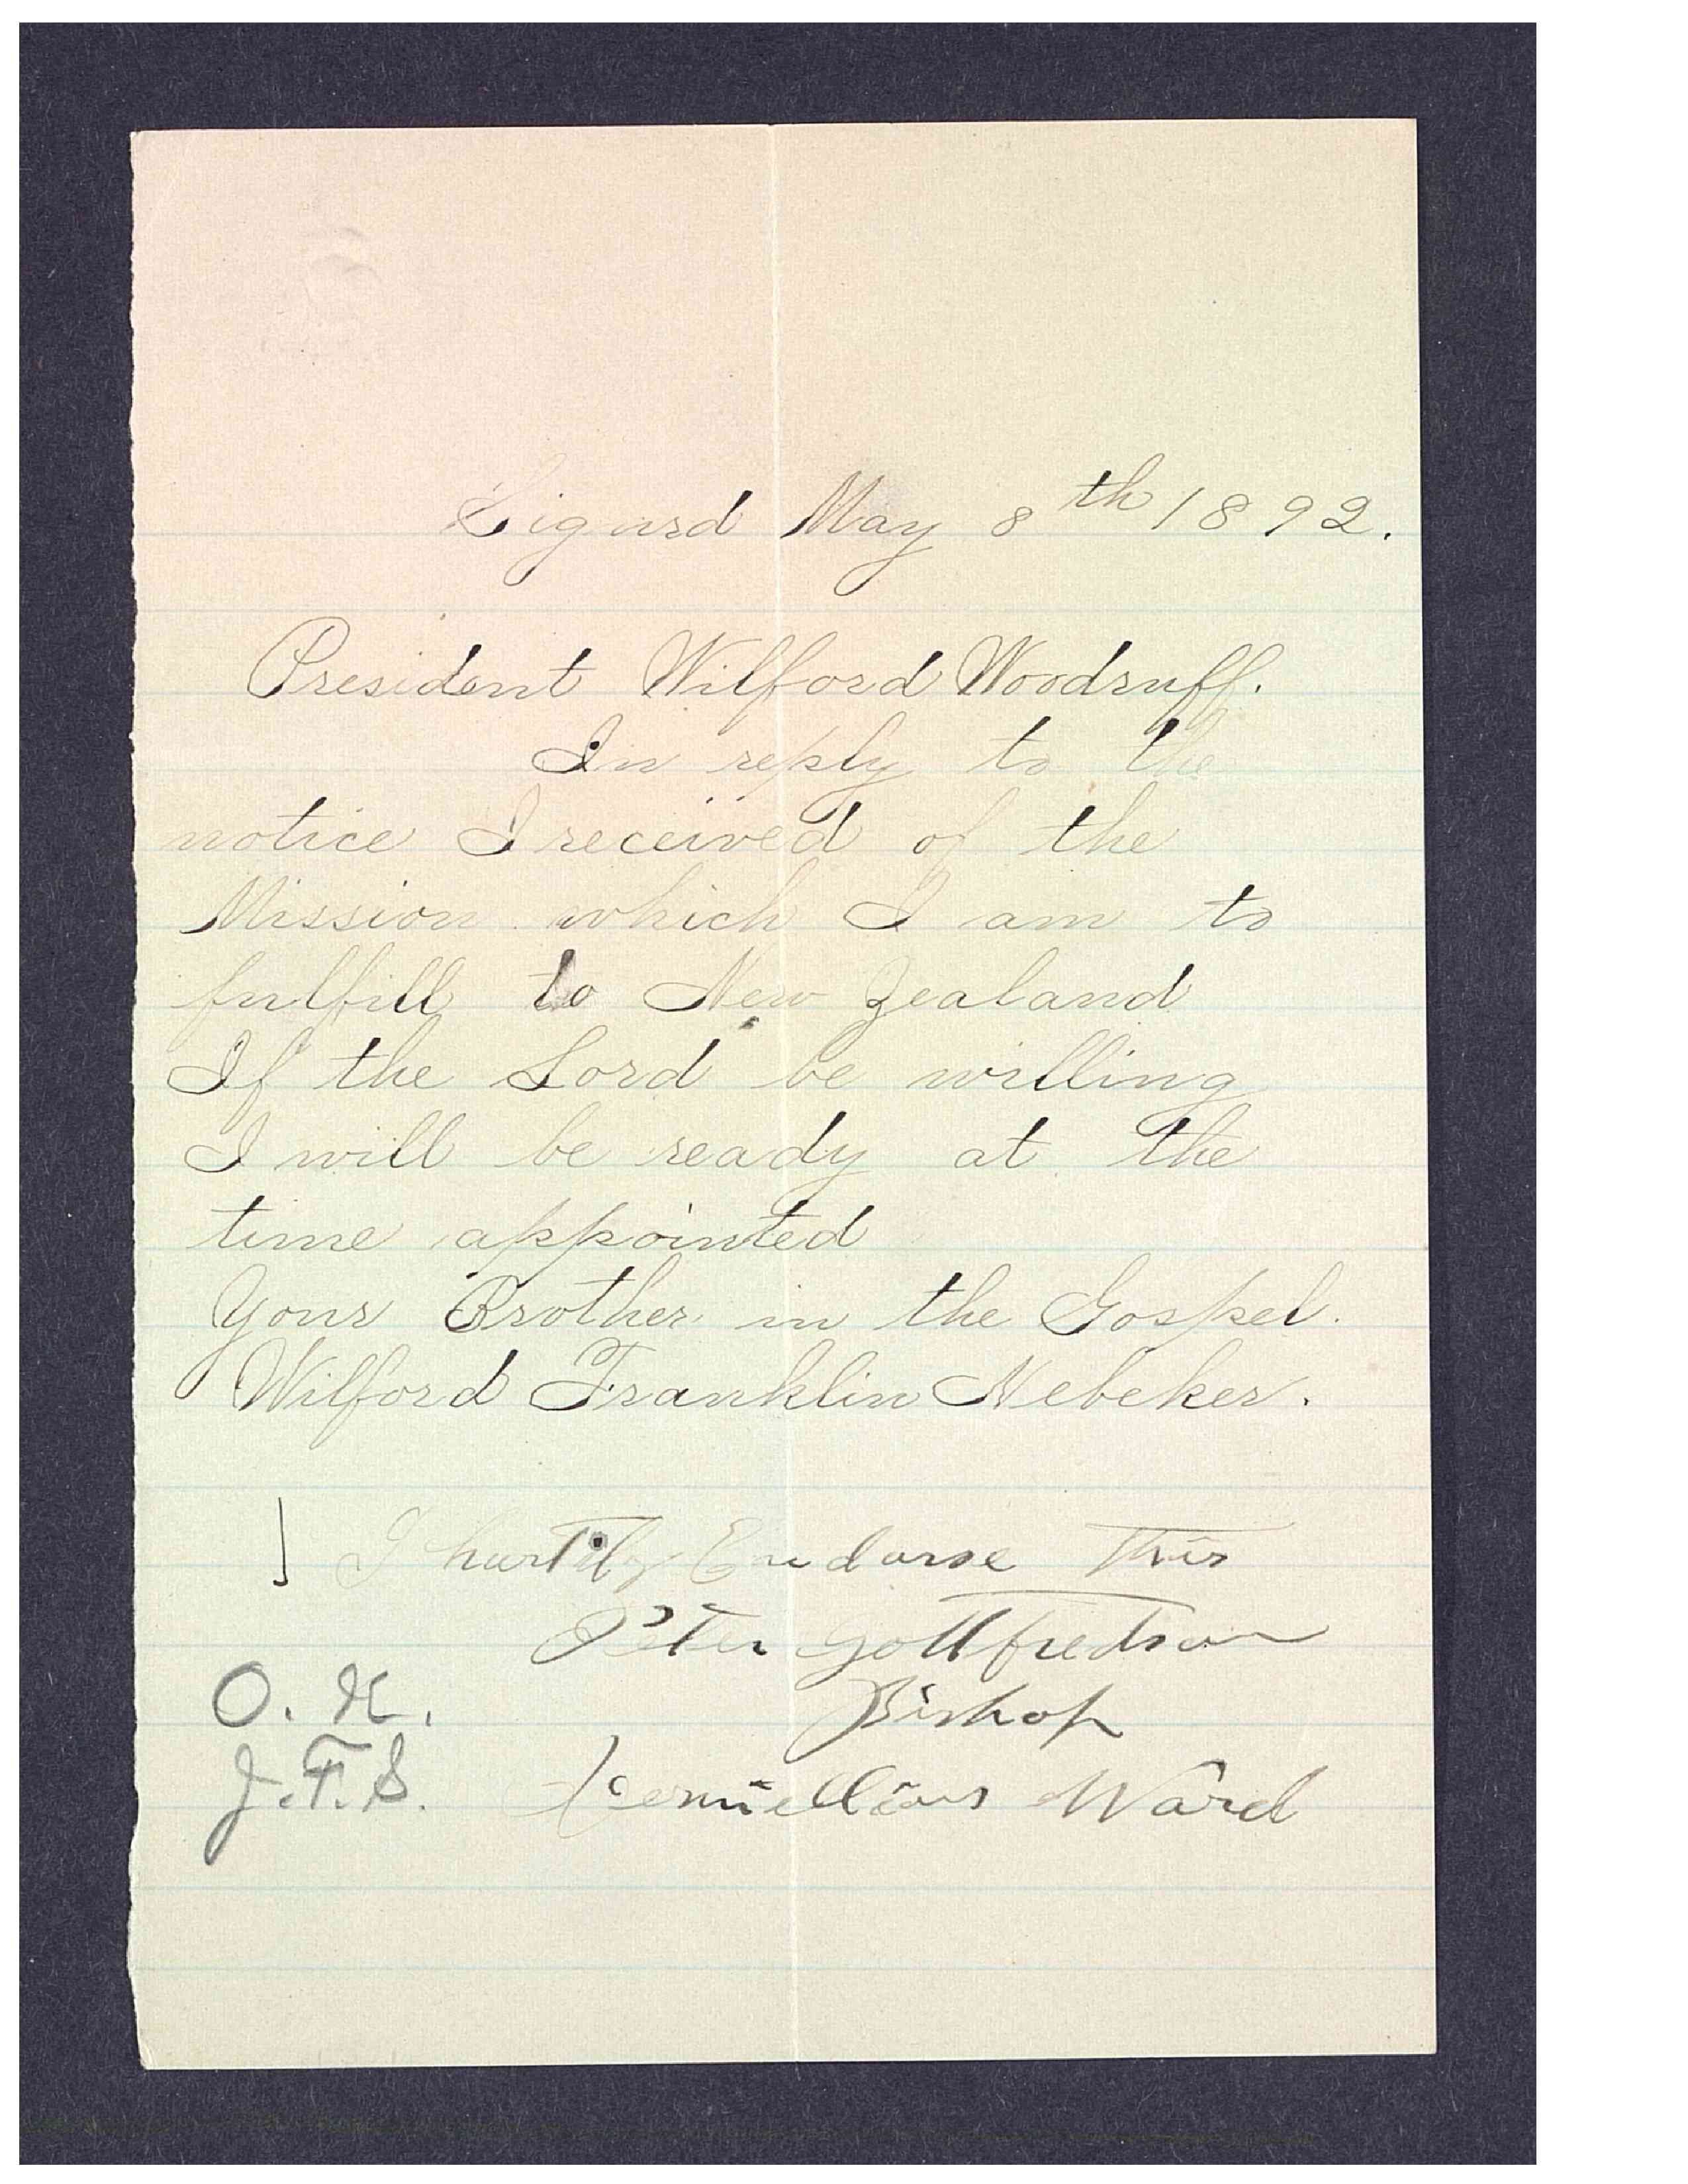 Sigurd May 8th 1892.
President Wilford Woodruff.
In reply to the
notice I received of the
Mission which I am to
fulfill to New Zealand
If the Lord be willing
I will be ready at the
time appointed
Your Brother in the Gospel.
Wilford Franklin Nebeker.
I hartily Endorse this
Peter Gottfredson
Bishop
Vermillion Ward
O. K.
J. F. S.